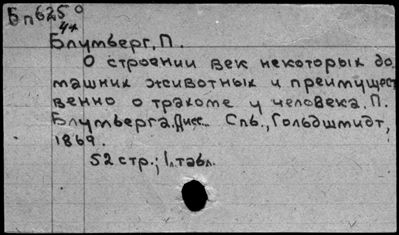 Бп 625°
4*
Блумберг, П.
О строении век некоторых до
машних животных и преимущест
венно о трахоме у человека. П.
Блумберга. Дисс... Спб., Гольдшмидт,
1869.
52 стр.; 1 л. табл.